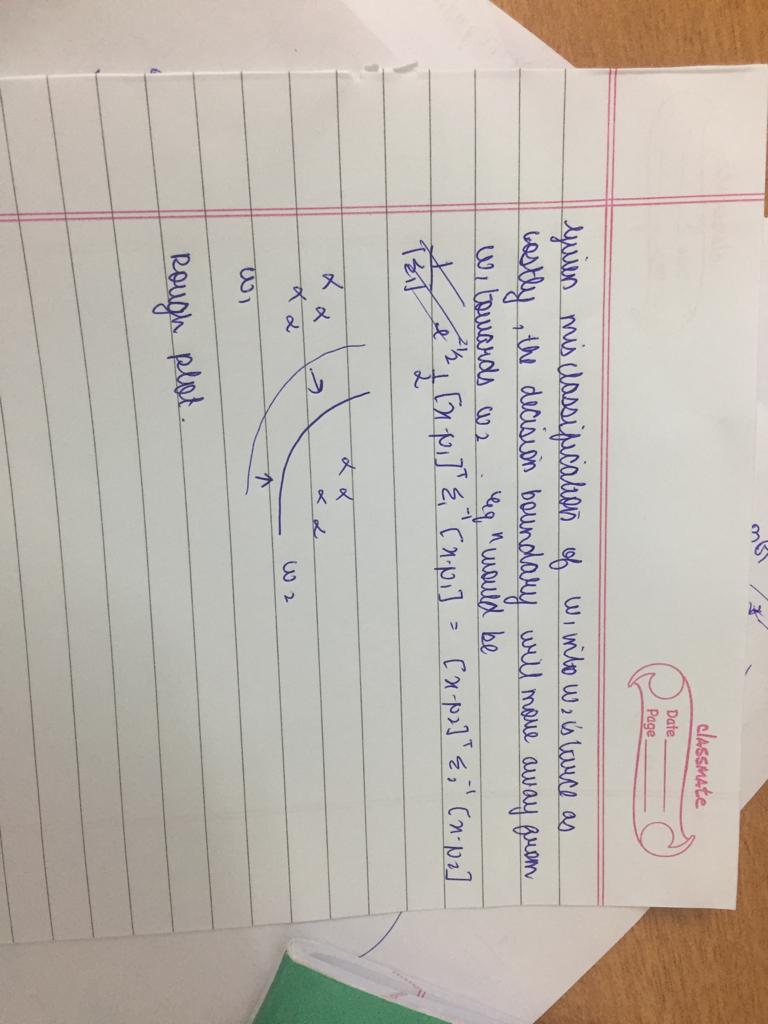 classmate
Date
Page
Given misclassification of ω₁ into ω₂ is twice as
costly, the decision boundary will move away from
ω₁ towards ω₂. eqⁿ would be
½ [x-μ₁]ᵀ Σ₁⁻¹ [x-μ₁] = [x-μ₂]ᵀ Σ₂⁻¹ [x-μ₂]
α α α α
α α α α
ω₁ ω₂
Rough plot.